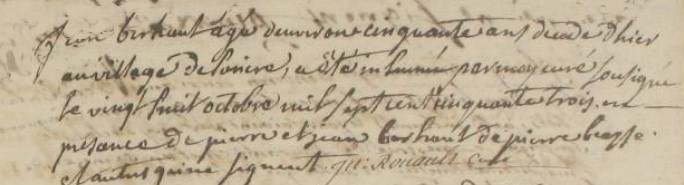 Jean berhaut agé denviron cinquante ans decedé dhier
au village de loniere, a été inhumé par moy curé sousigné
le vingt huit octobre mil sept cent cinquante trois. en
presance de pierre et jean berhaut de pierre
et autres qui ne signent. Rouault Curé